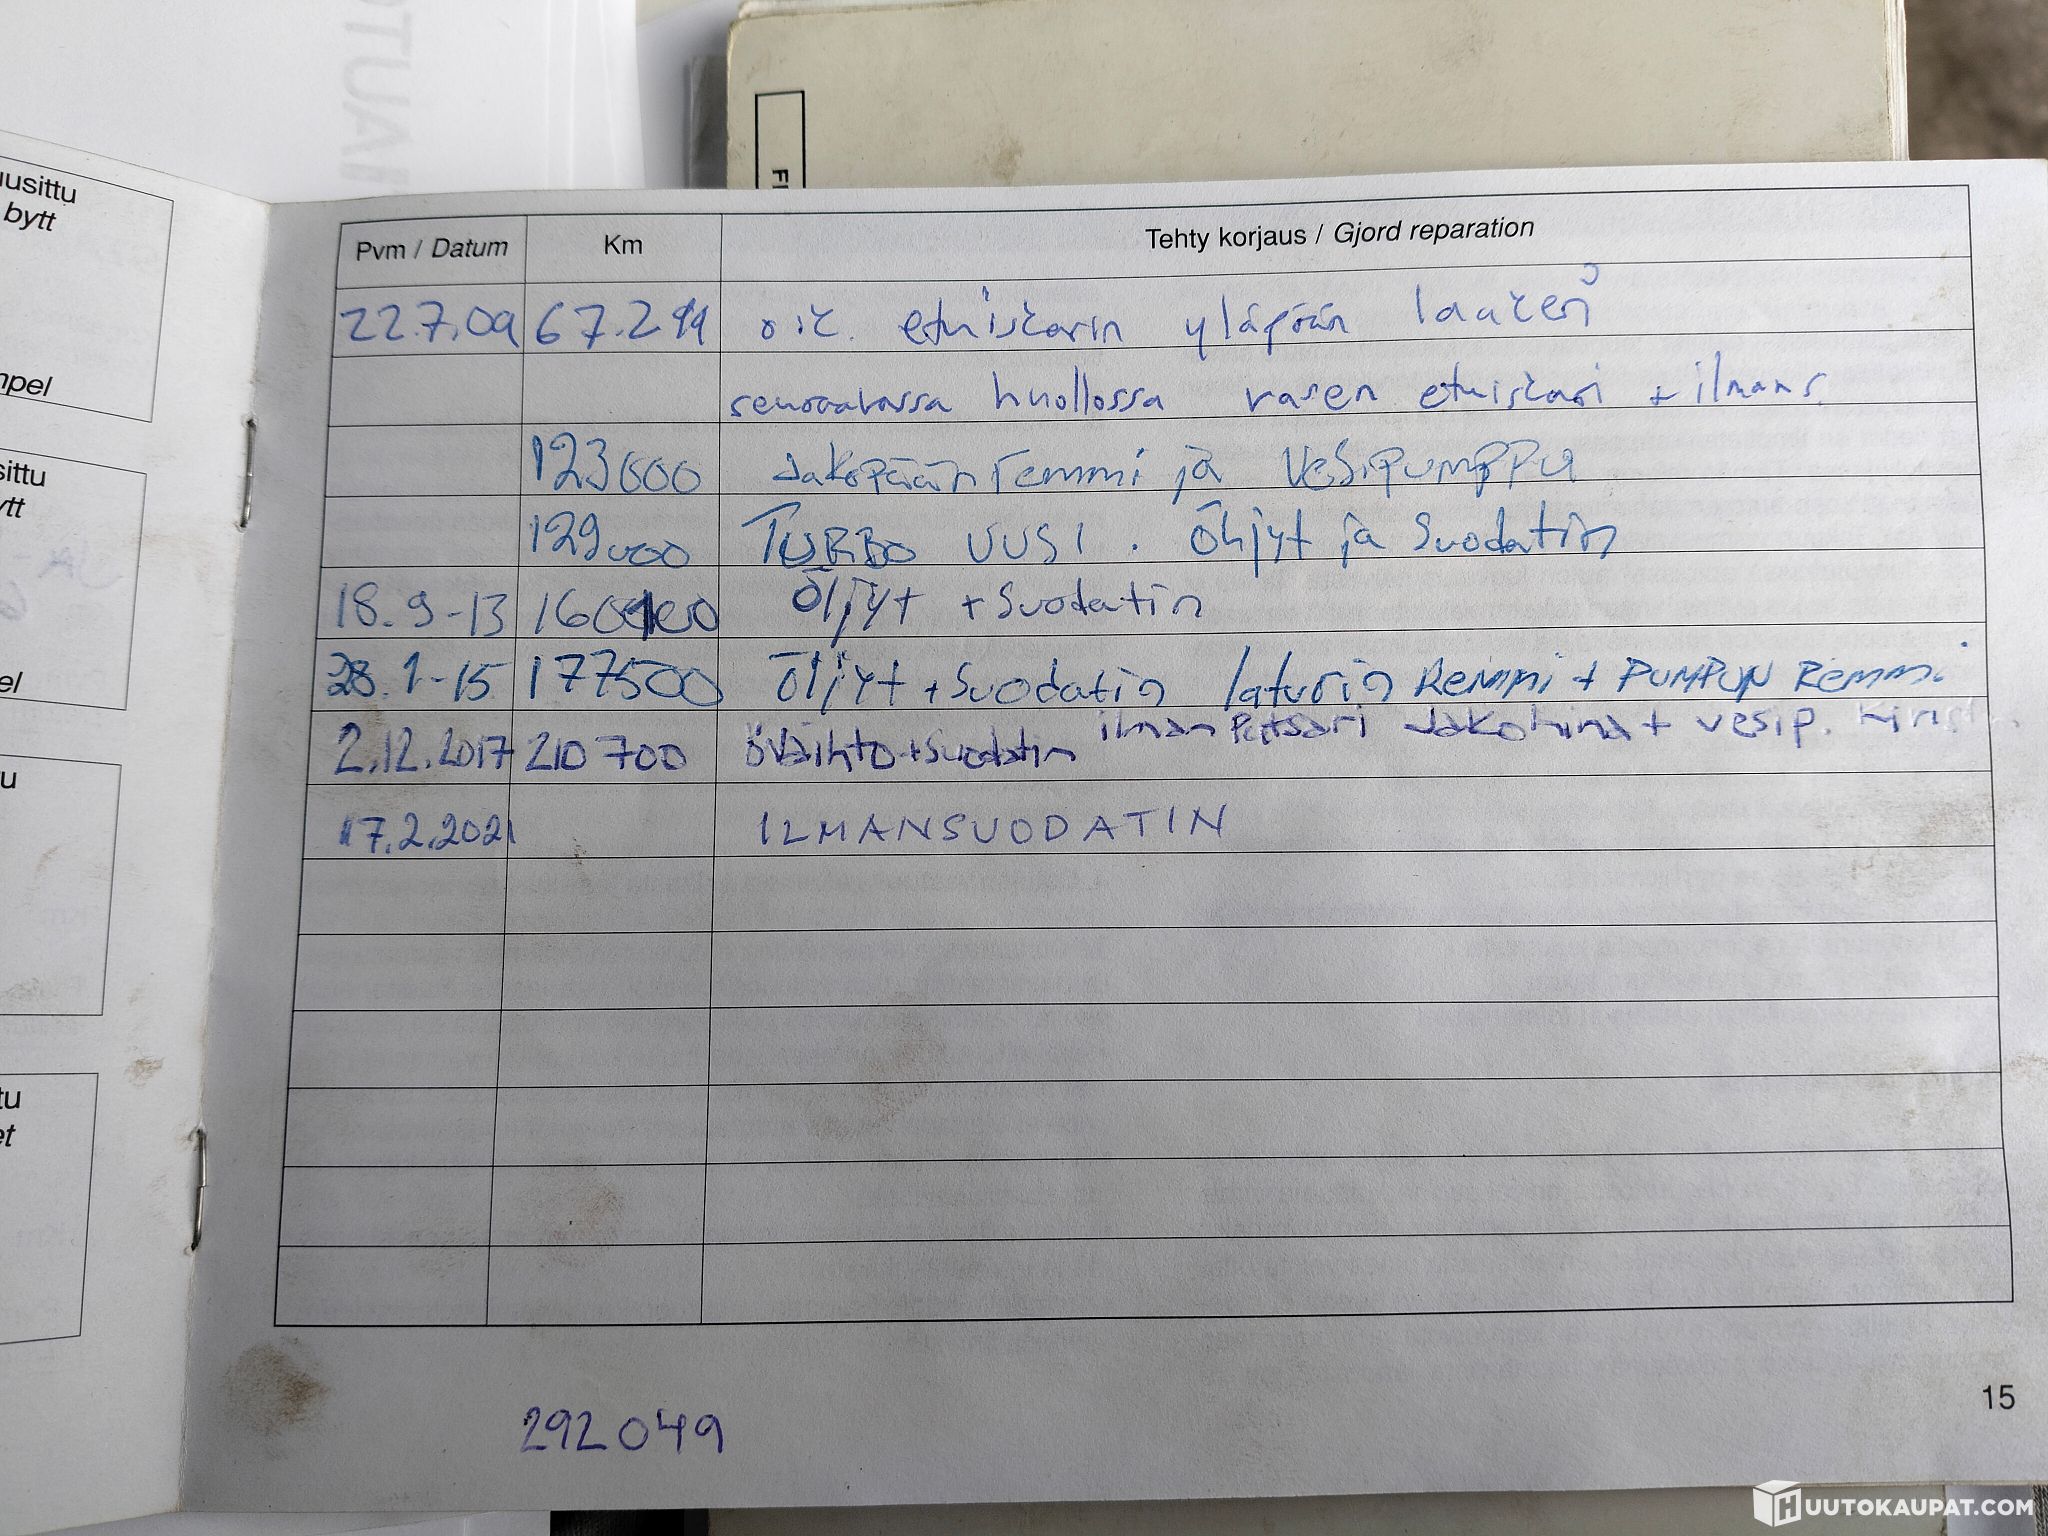 OTUA
FI
uusittu
bytt
mpel
sittu
ytt
el
u
tu
et
Pvm / Datum Km Tehty korjaus / Gjord reparation
22.7.09 67.299 oik. etuiskarin yläpään laakeri
seuraavassa huollossa vasen etuiskari + ilmans.
123000 Jakopään remmi ja vesipumppu
129000 TURBO UUSI. Öhjyt ja Suodatin
18.9-13 Öljyt + Suodatin
28.1-15 177500 Öljyt + Suodatin laturin Remmi + PUMPUN Remmi
2.12.2017 210 700 öväihto + suodatin ilman Putsari Jakohina + vesip. Kirist
17.2.2021 ILMANSUODATIN
15
292049
HUUTOKAUPAT.COM